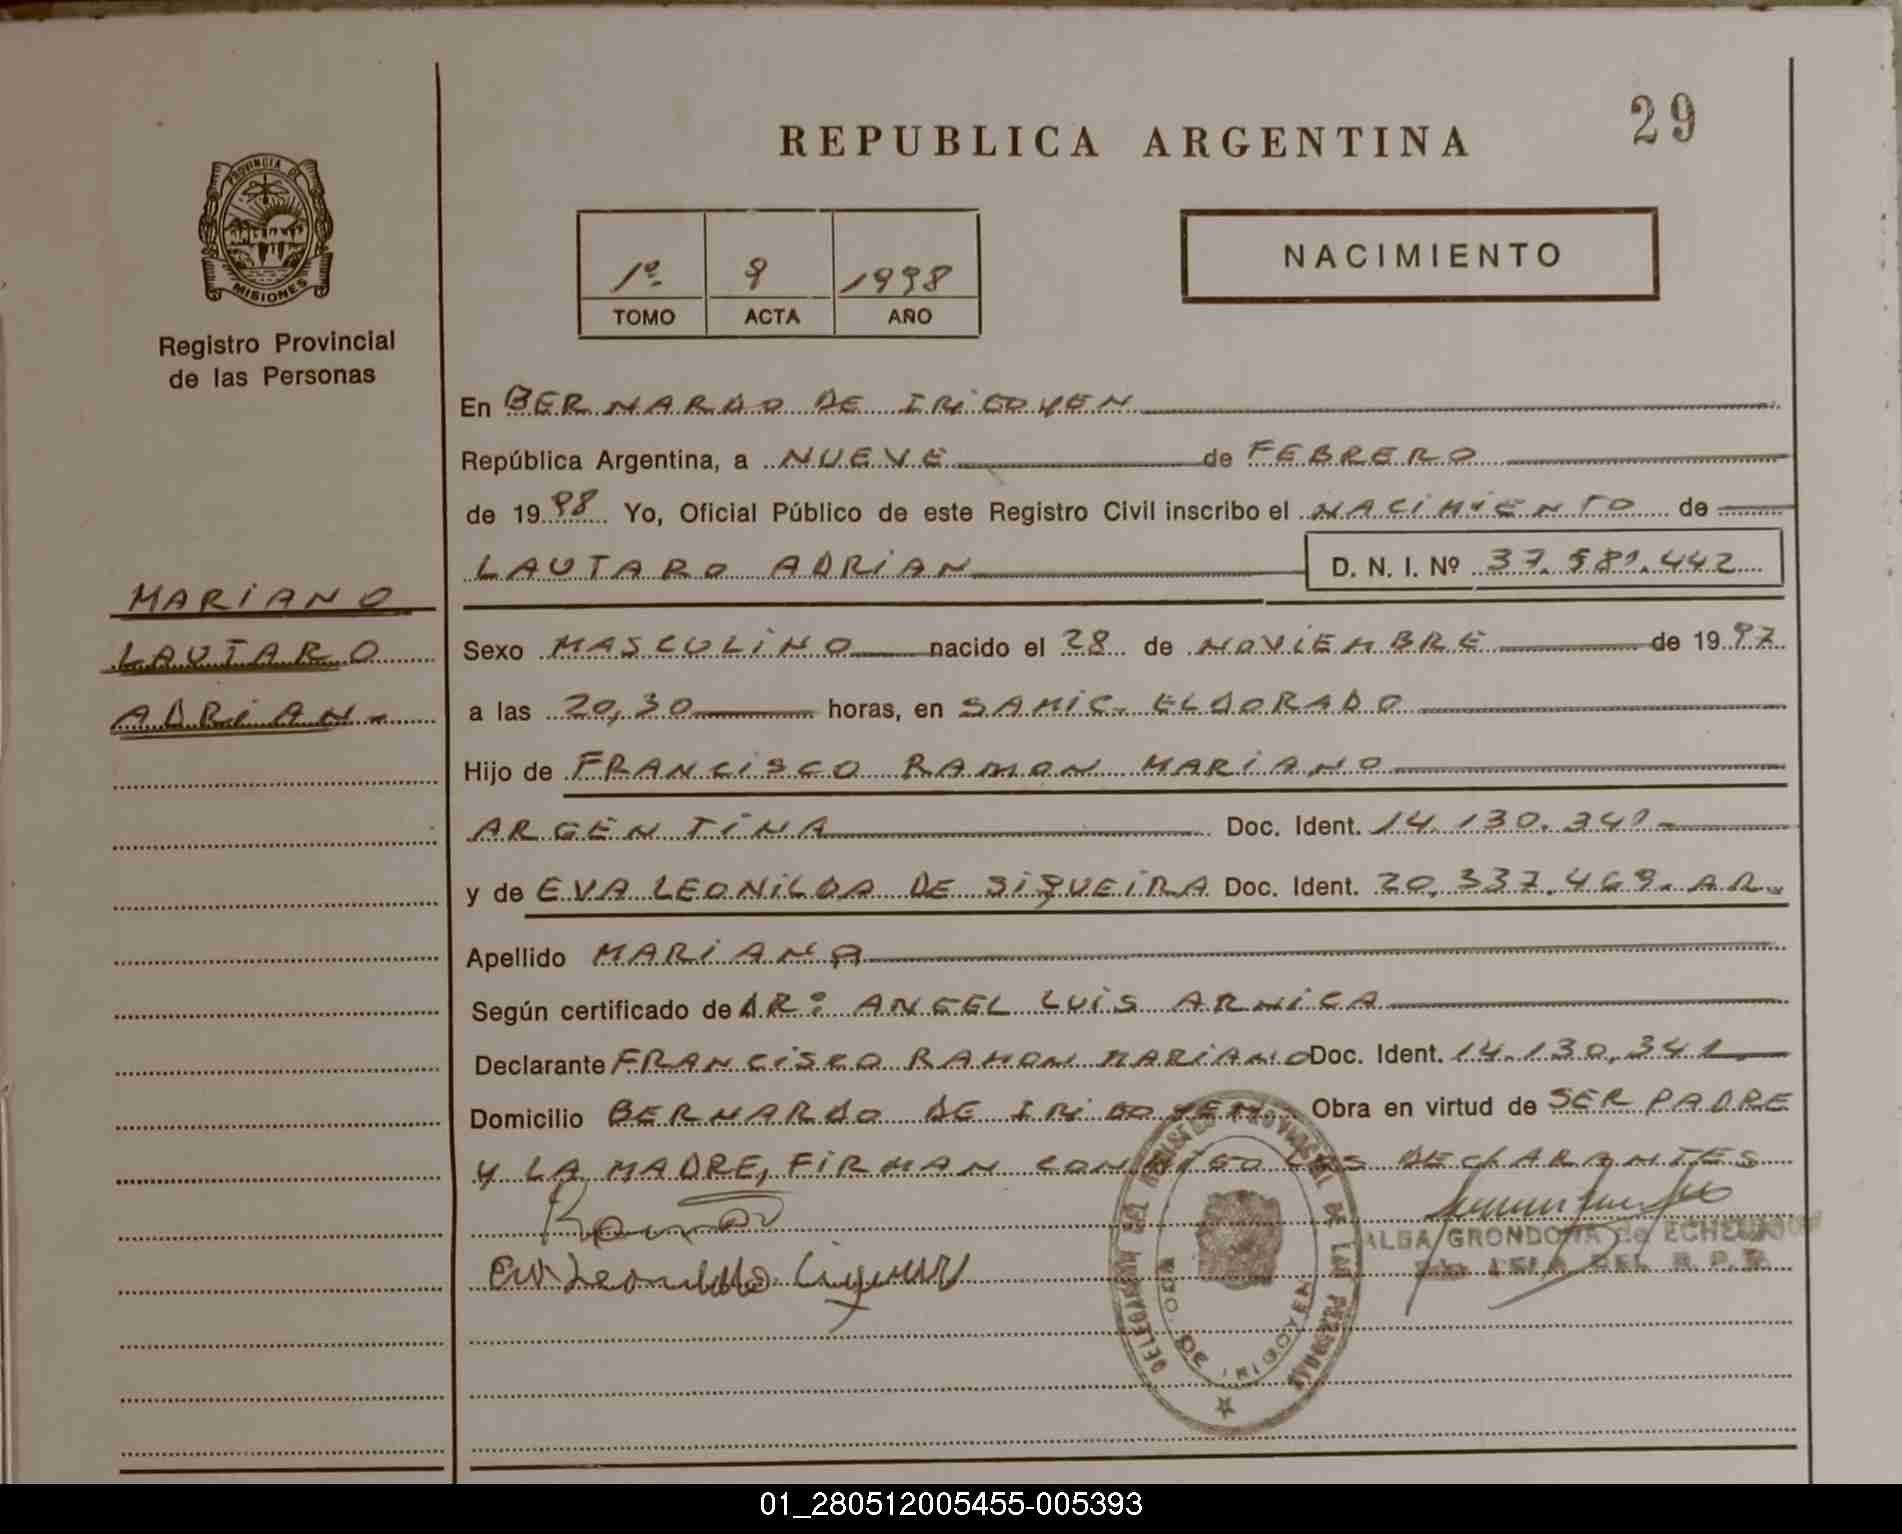 29
REPUBLICA ARGENTINA
PROVINCIA DE
MISIONES
Registro Provincial
de las Personas
1º 9 1998
TOMO ACTA AÑO
NACIMIENTO
En BERNARDO DE IRIGOYEN
República Argentina, a NUEVE de FEBRERO
de 1998 Yo, Oficial Público de este Registro Civil inscribo el NACIMIENTO de
LAUTARO ADRIAN D. N. I. Nº 37.581.442
MARIANO
LAUTARO
ADRIAN.-
Sexo MASCULINO nacido el 28 de NOVIEMBRE de 1997
a las 20,30 horas, en SAMIC- ELDORADO
Hijo de FRANCISCO RAMON MARIANO
ARGENTINA Doc. Ident. 14.130.341-
y de EVA LEONILDA DE SIQUEIRA Doc. Ident. 20.337.469. AR.
Apellido MARIANO
Según certificado de DR: ANGEL LUIS ARNICA
Declarante FRANCISCO RAMON MARIANO Doc. Ident. 14.130.341.
Domicilio BERNARDO DE IRIGOYEN. Obra en virtud de SER PADRE
Y LA MADRE, FIRMAN CONMIGO LOS DECLARANTES
ALBA GRONDONA de
DEL R.P.P.
DELEGACION DEL REGISTRO PROVINCIAL DE LAS PERSONAS
DE IRIGOYEN
01_280512005455-005393